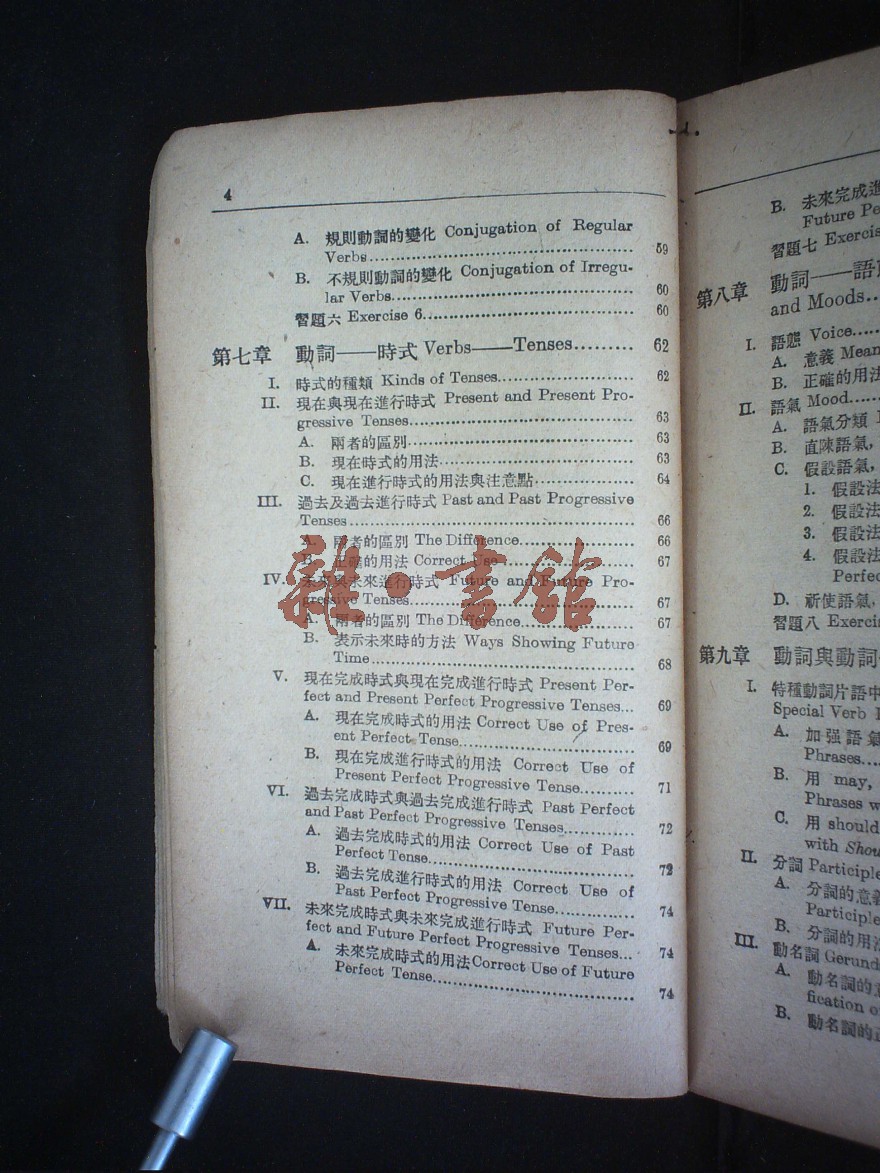 4
A. 規則動詞的變化 Conjugation of Regular
Verbs 59
B. 不規則動詞的變化 Conjugation of Irregu-
lar Verbs 60
習題六 Exercise 6 60
第七章 動詞——時式 Verbs——Tenses 62
I. 時式的種類 Kinds of Tenses 62
II. 現在與現在進行時式 Present and Present Pro-
gressive Tenses 63
A. 兩者的區別 63
B. 現在時式的用法 63
C. 現在進行時式的用法與注意點 64
III. 過去及過去進行時式 Past and Past Progressive
Tenses 66
A. 兩者的區別 The Difference 66
B. 正確的用法 Correct Use 67
IV. 未來與未來進行時式 Future and Future Pro-
gressive Tenses 67
A. 兩者的區別 The Difference 67
B. 表示未來時的方法 Ways Showing Future
Time 68
V. 現在完成時式與現在完成進行時式 Present Per-
fect and Present Perfect Progressive Tenses... 69
A. 現在完成時式的用法 Correct Use of Pres-
ent Perfect Tense 69
B. 現在完成進行時式的用法 Correct Use of
Present Perfect Progressive Tense 71
VI. 過去完成時式與過去完成進行時式 Past Perfect
and Past Perfect Progressive Tenses 72
A. 過去完成時式的用法 Correct Use of Past
Perfect Tense 72
B. 過去完成進行時式的用法 Correct Use of
Past Perfect Progressive Tense 74
VII. 未來完成時式與未來完成進行時式 Future Per-
fect and Future Perfect Progressive Tenses... 74
A. 未來完成時式的用法 Correct Use of Future
Perfect Tense 74
雜·書館
B. 未來完成進
Future
習題七 Exercise
第八章 動詞——語
and Moods
I. 語態 Voice
A. 意義
B. 正確的用法
II. 語氣 Mood
A. 語氣分類
B. 直陳語氣,
C. 假設語氣,
1. 假設法
2. 假設法
3. 假設法
4. 假設法
D. 祈使語氣,
習題八
第九章 動詞與動詞
I. 特種動詞片語中
Special Verb
A. 加强語氣
Phrases
B. 用 may,
Phrases
C. 用 should
with
II. 分詞
A. 分詞的意義
B. 分詞的用法
III. 動名詞
A. 動名詞的
B. 動名詞的